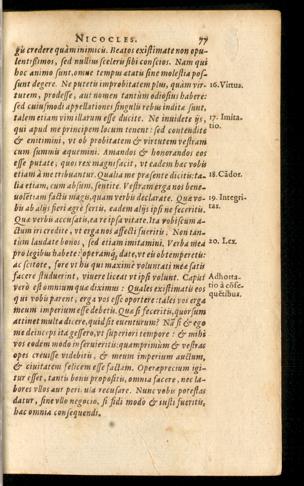 NICOCLES. 77
gis credere quàm inimicis. Beatos existimate non opu-
lentissimos, sed nullius sceleris sibi conscios. Nam qui
hoc animo sunt, omne tempus ætatis sine molestia pos-
sunt degere. Ne putetis improbitatem plus, quàm vir-
tutem, prodesse, aut nomen tantùm odiosius habere:
sed cuiusmodi appellationes singulis rebus inditæ sunt,
talem etiam vim illarum esse ducite. Ne inuidete ijs,
qui apud me principem locum tenent: sed contendite
& enitimini, vt ob probitatem & virtutem vestram
cum summis æquemini. Amandos & honorandos eos
esse putate, quos rex magnifacit, vt eadem hæc vobis
etiam à me tribuantur. Qualia me præsente dicitis: ta-
lia etiam, cum absum, sentite. Vestram erga nos bene-
uolentiam factis magis, quàm verbis declarate. Quæ vo-
bis ab alijs fieri ægrè fertis, eadem alijs ipsi ne feceritis.
Quæ verbis accusatis, ea re ipsa vitate. Ita vobiscum a-
ctum iri credite, vt erga nos affecti fueritis. Non tan-
tùm laudate bonos, sed etiam imitamini. Verba mea
pro legibus habete: operamq́, date, vt eis obtemperetis:
ac scitote, fore vt his qui maximè voluntati meæ satis
facere studuerint, viuere liceat vt ipsi volunt. Caput
verò est omnium quæ diximus: Quales existimatis eos
qui vobis parent, erga vos esse oportere: tales vos erga
meum imperium esse debetis. Quæ si feceritis, quorsum
attinet multa dicere, quid sit euenturum? Nã si & ego
me deinceps ita gessero, vt superiori tempore: & mihi
vos eodem modo inseruieritis: quamprimùm & vestras
opes creuisse videbitis, & meum imperium auctum,
& ciuitatem felicem esse factam. Operæprecium igi-
tur esset, tantis bonis propositis, omnia facere, nec la-
bores vllos aut pericula recusare. Nunc vobis potestas
datur, sine vllo negocio, si fidi modò & iusti fueritis,
hæc omnia consequendi.
16. Virtus.
17. Imita-
tio.
18. Cãdor.
19. Integri-
tas.
20. Lex.
Adhorta-
tio à cõse-
quẽtibus.